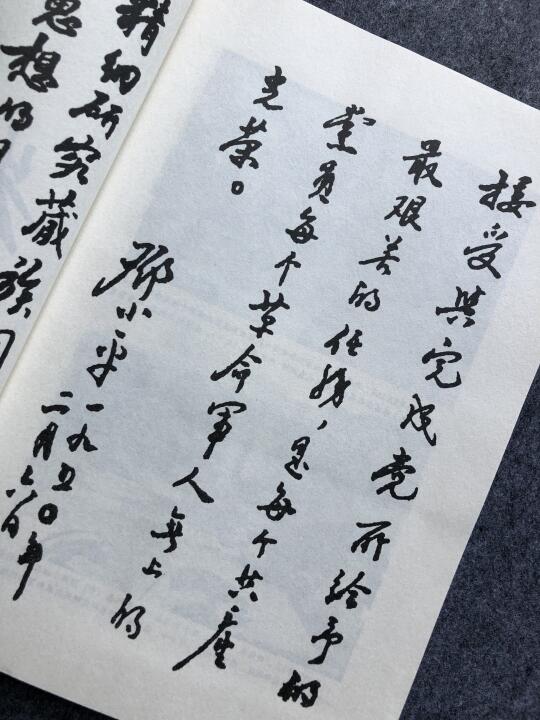 接受與完成党所给予的
最艰苦的任務，是每个共產
党員每个革命軍人無上的
光荣。
鄧小平 一九五〇年
二月六日
精細研究藏族
思想的